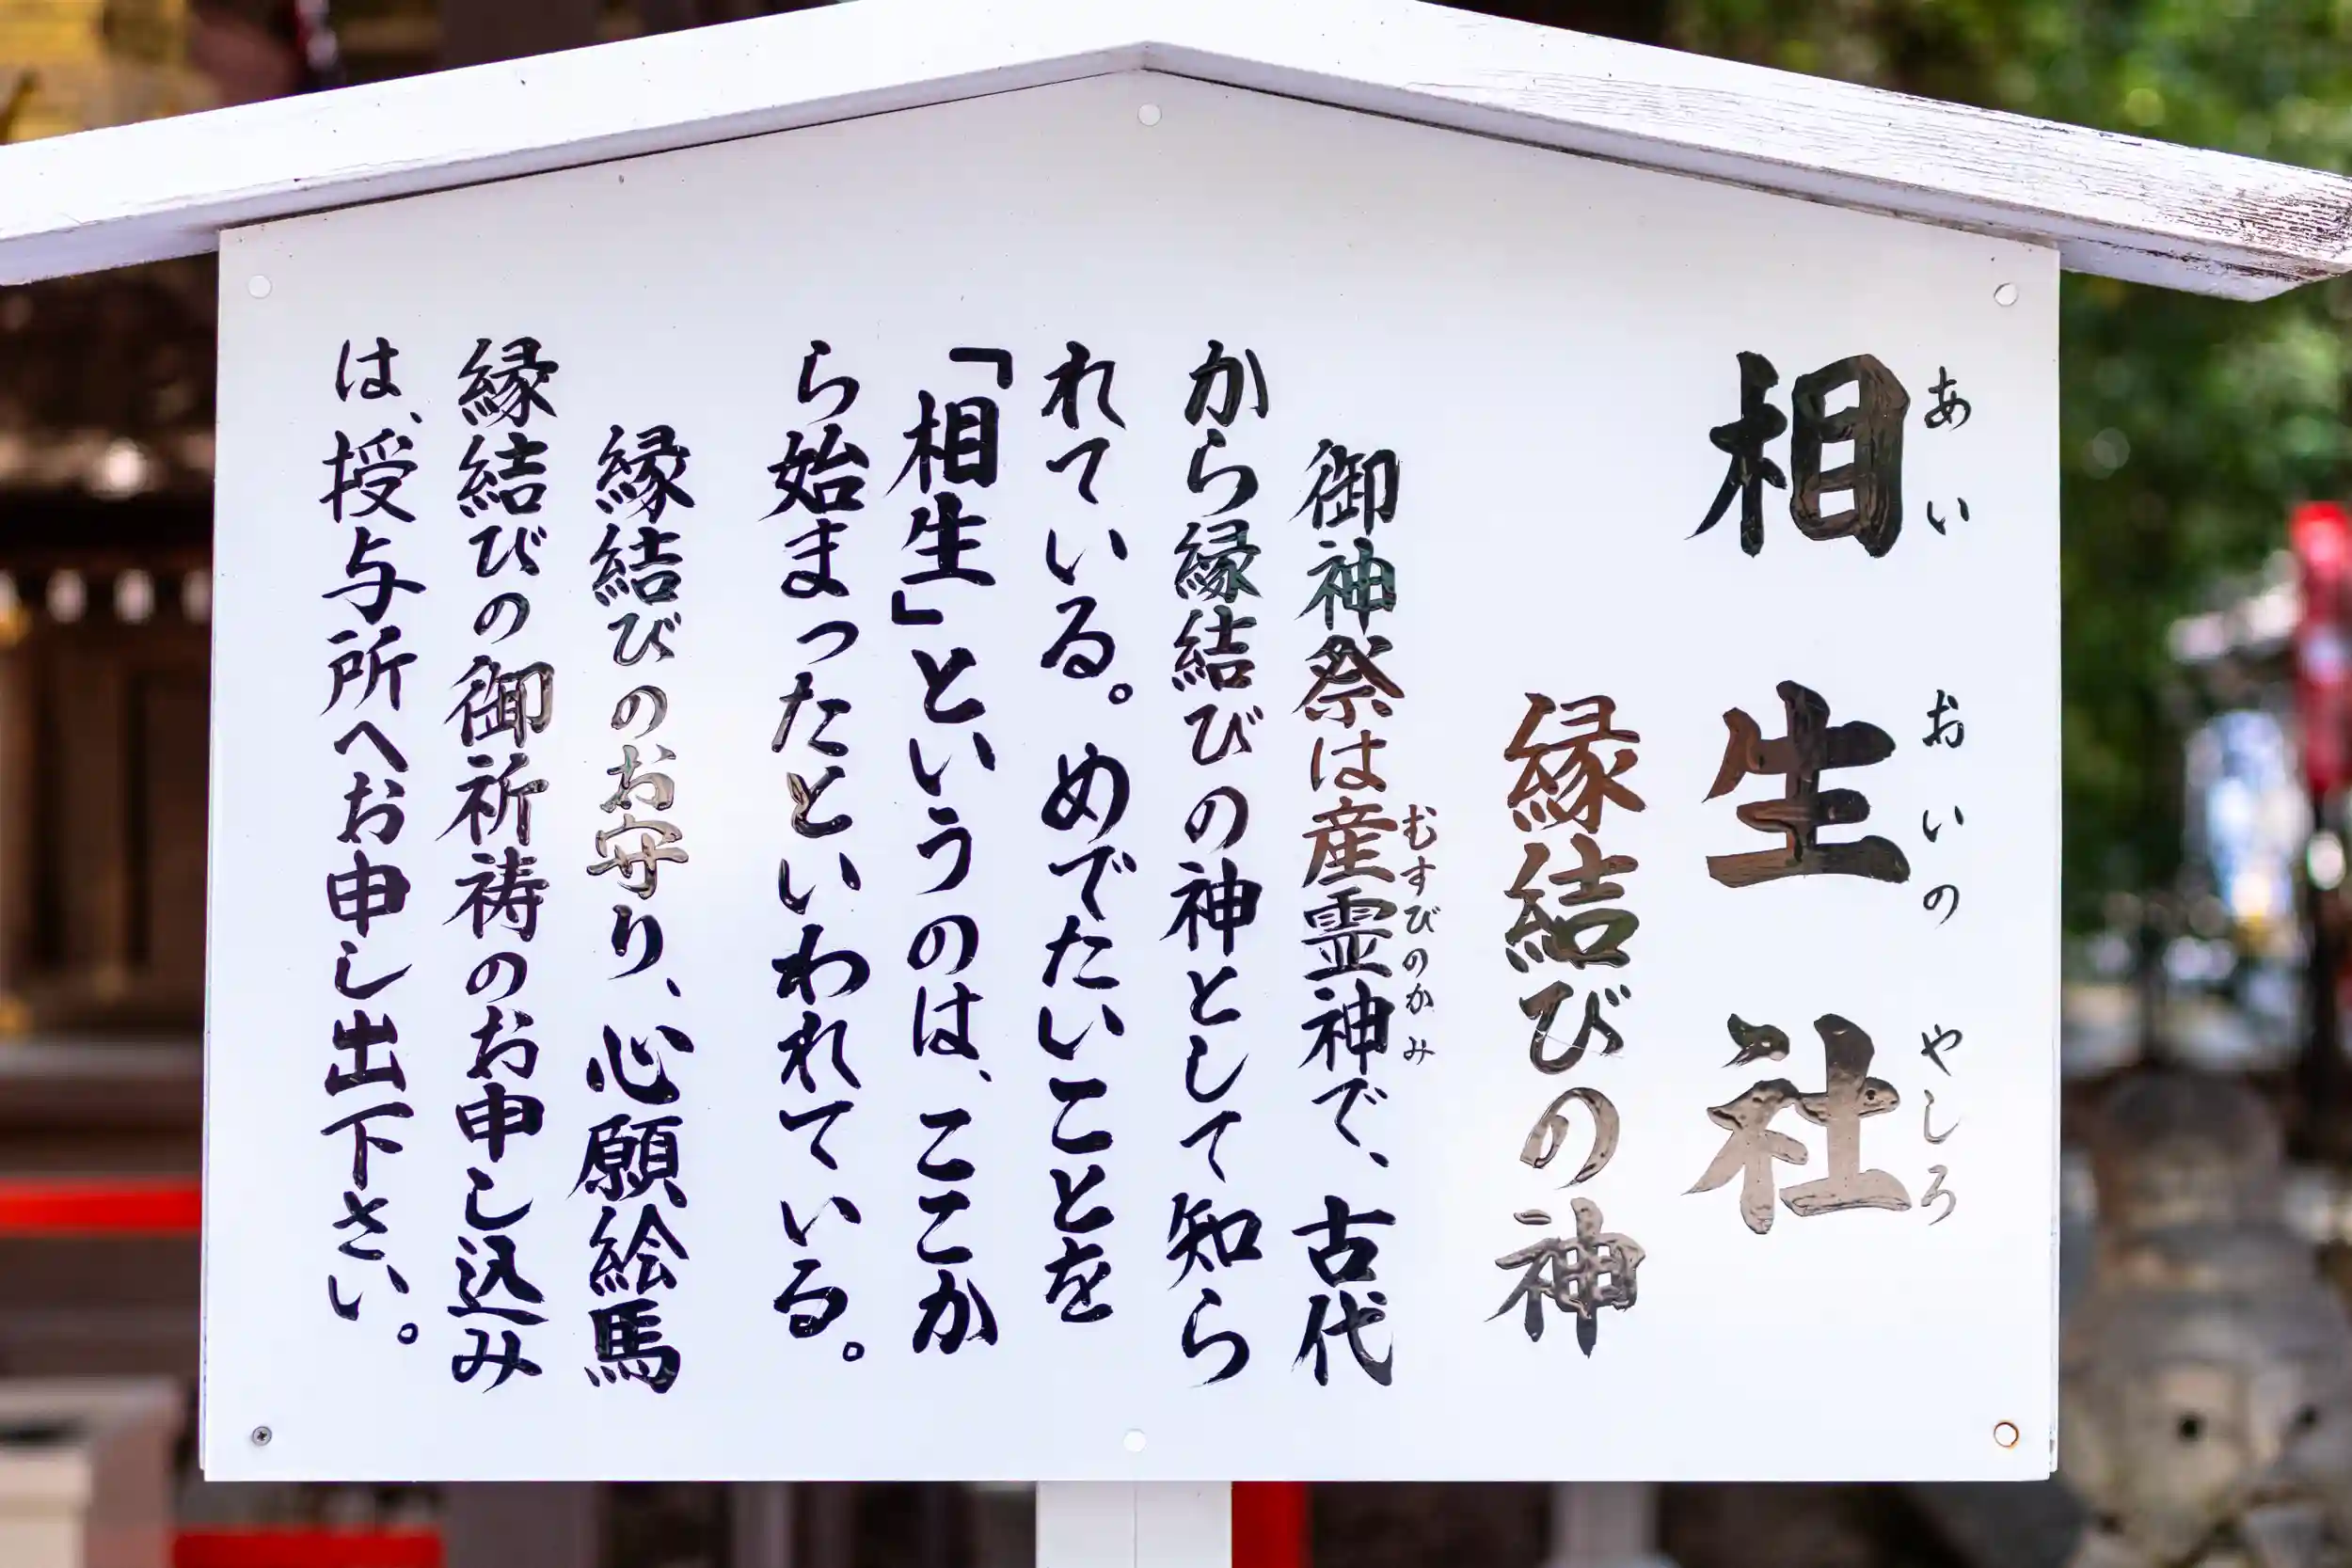 相生社
あいおいのやしろ
縁結びの神
御神祭は産霊神で、古代
むすびのかみ
から縁結びの神として知ら
れている。めでたいことを
「相生」というのは、ここか
ら始まったといわれている。
縁結びのお守り、心願絵馬
縁結びの御祈祷のお申し込み
は、授与所へお申し出下さい。